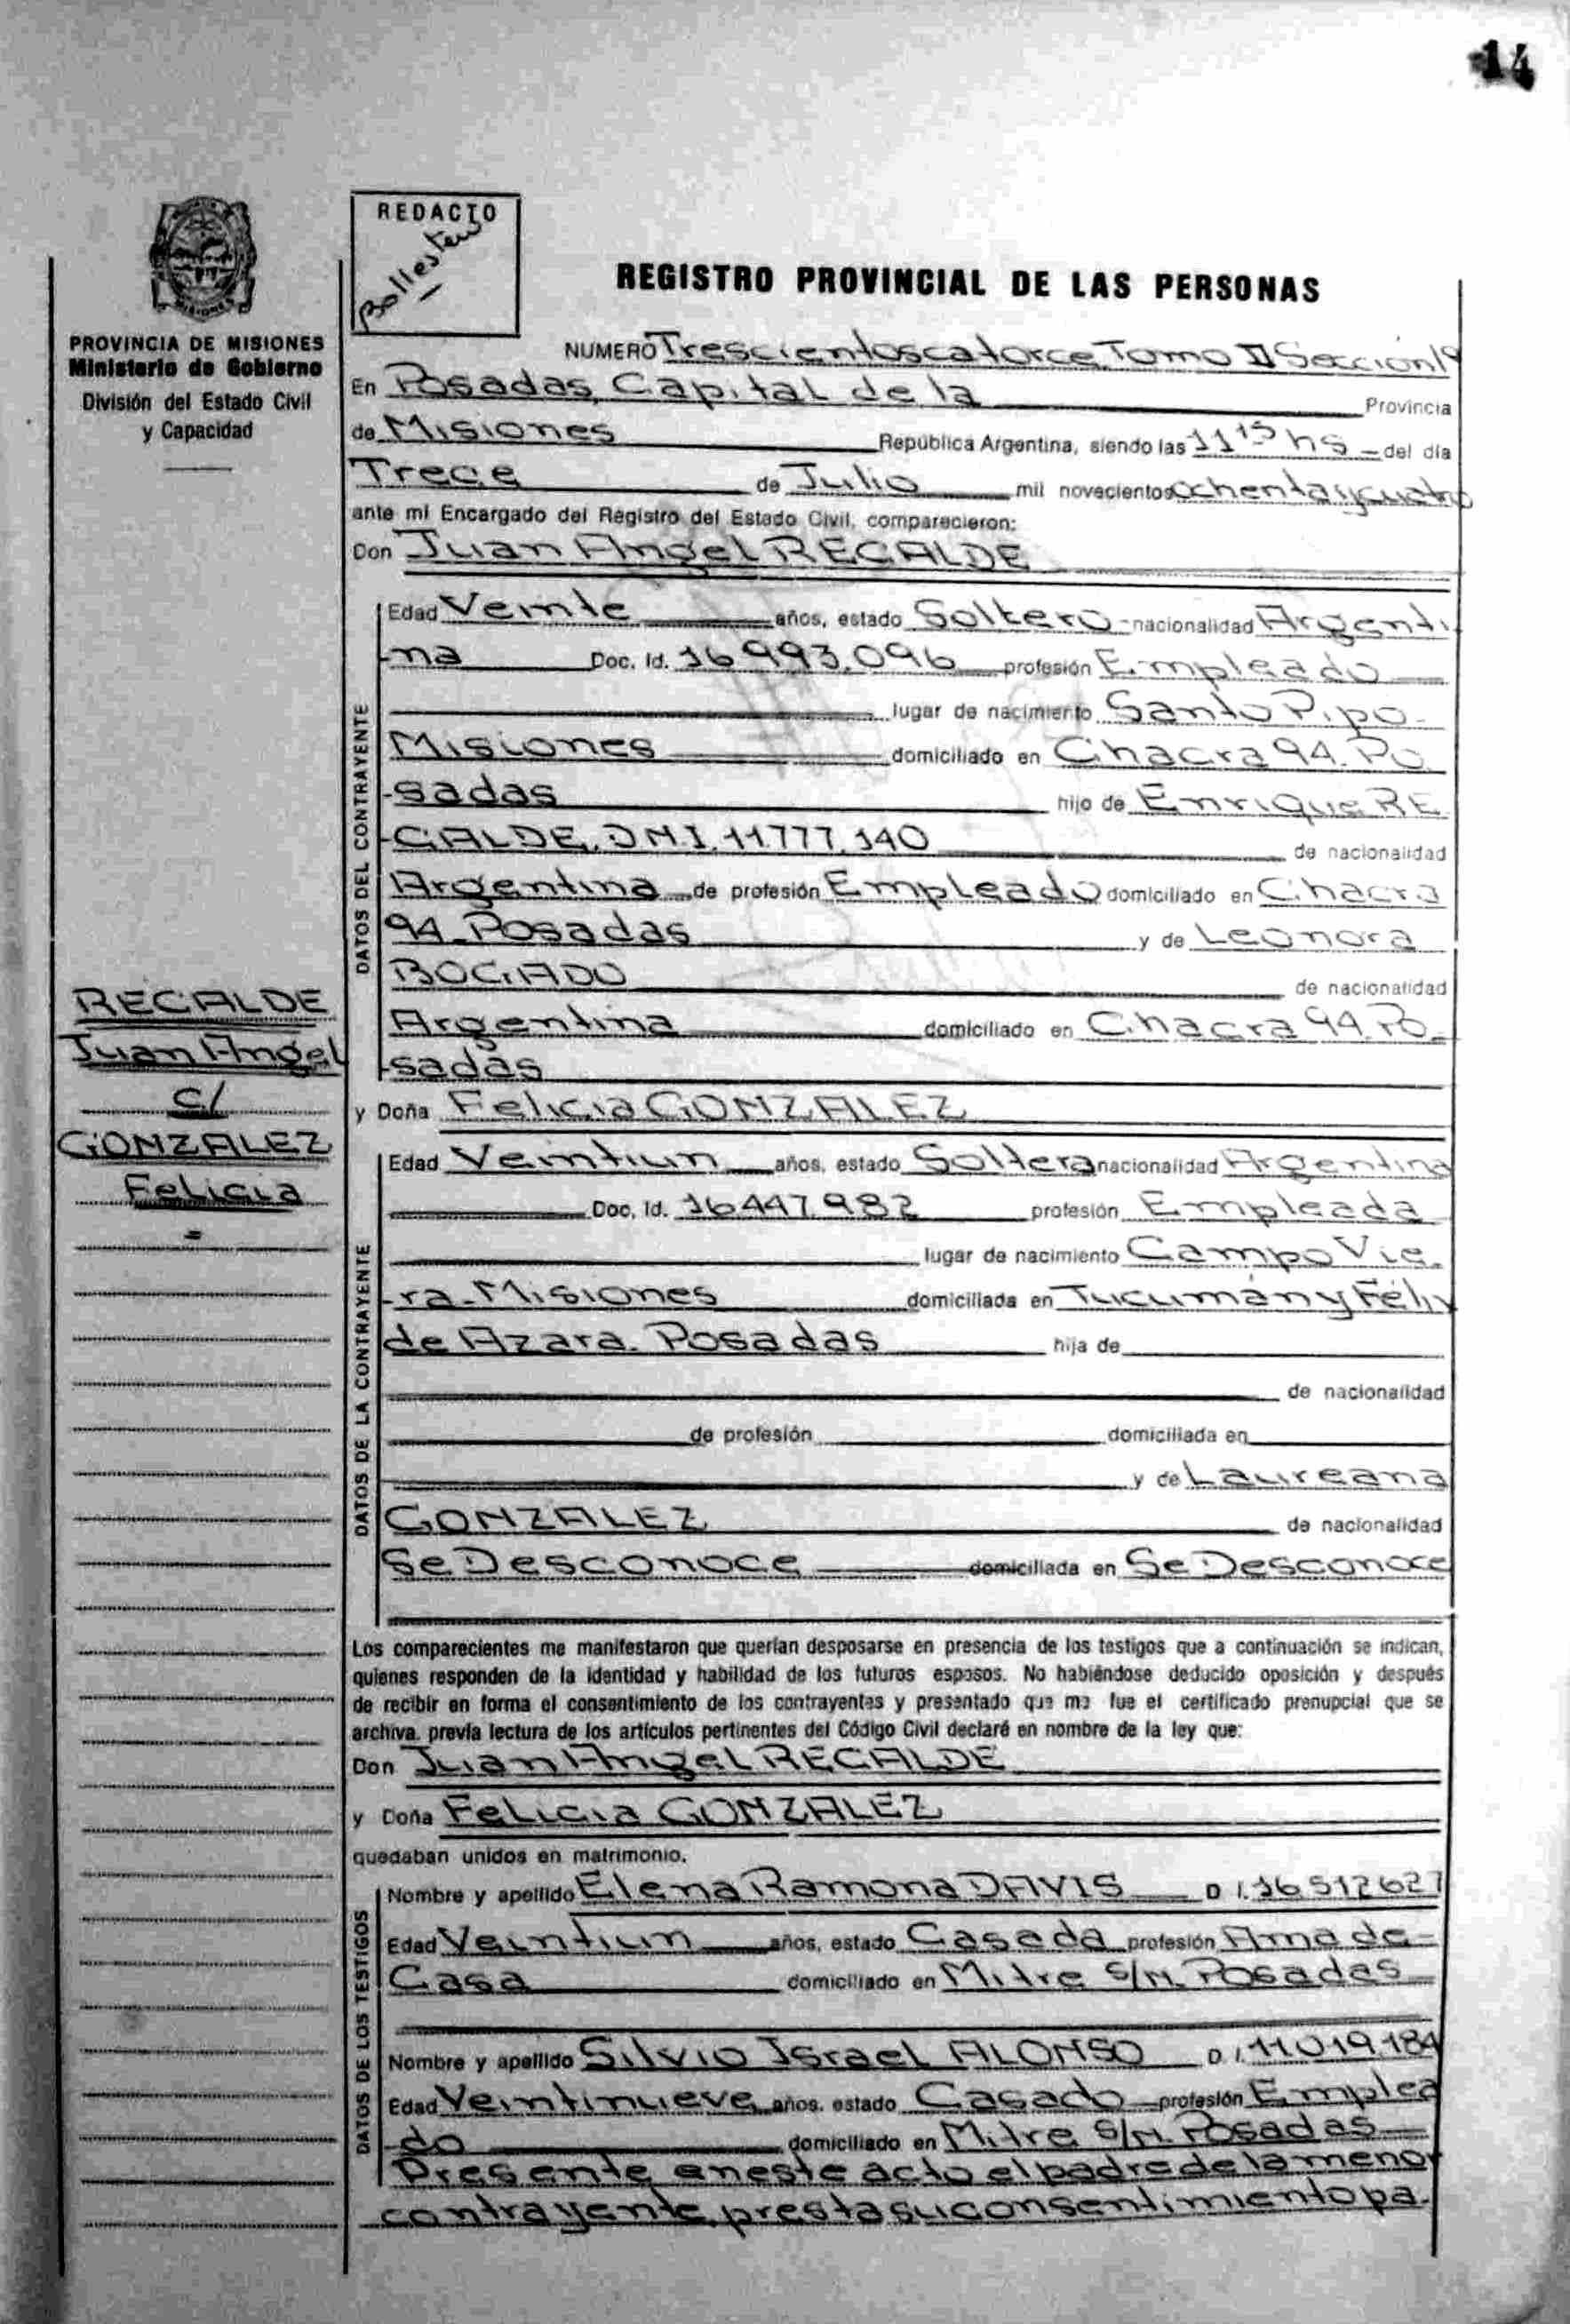 14
REDACTO
Ballestero
REGISTRO PROVINCIAL DE LAS PERSONAS
PROVINCIA DE MISIONES
Ministerio de Gobierno
División del Estado Civil
y Capacidad
NUMERO Trescientos catorce Tomo II Sección 1ª
En Posadas, Capital de la Provincia
de Misiones República Argentina, siendo las 11 15 hs - del día
Trece de Julio mil novecientos ochenta y cuatro
ante mi Encargado del Registro del Estado Civil, comparecieron:
Don Juan Angel RECALDE
Edad Veinte años, estado Soltero - nacionalidad Argenti
-na Doc. Id. 16 993.096 profesión Empleado
lugar de nacimiento Santo Pipo-
Misiones domiciliado en Chacra 94. Po
-sadas hijo de Enrique RE
-CALDE, DNI. 11.777.140 de nacionalidad
Argentina de profesión Empleado domiciliado en Chacra
94 - Posadas y de Leonora
BOGADO de nacionalidad
Argentina domiciliado en Chacra 94. Po-
-sadas
RECALDE
Juan Angel
c/
GONZALEZ
Felicia
=
y Doña Felicia GONZALEZ
Edad Veintiun años, estado Soltera nacionalidad Argentina
Doc. Id. 16.447.982 profesión Empleada
lugar de nacimiento Campo Vie.
-ra - Misiones domiciliada en Tucumán y Félix
de Azara. Posadas hija de
de nacionalidad
de profesión domiciliada en
y de Laureana
GONZALEZ de nacionalidad
Se Desconoce domiciliada en Se Desconoce
DATOS DEL CONTRAYENTE
DATOS DE LA CONTRAYENTE
Los comparecientes me manifestaron que querían desposarse en presencia de los testigos que a continuación se indican,
quienes responden de la identidad y habilidad de los futuros esposos. No habiéndose deducido oposición y después
de recibir en forma el consentimiento de los contrayentes y presentado que me fue el certificado prenupcial que se
archiva, previa lectura de los artículos pertinentes del Código Civil declaré en nombre de la ley que:
Don Juan Angel RECALDE
y Doña Felicia GONZALEZ
quedaban unidos en matrimonio.
DATOS DE LOS TESTIGOS
Nombre y apellido Elena Ramona DAVIS D.I. 16 512 627
Edad Veintiun años, estado Casada profesión Ama de-
Casa domiciliado en Mitre S/N. Posadas
Nombre y apellido Silvio Israel ALONSO D.I. 11.019.184
Edad Veintinueve años, estado Casado profesión Emplea
-do domiciliado en Mitre S/N. Posadas
Presente en este acto el padre de la menor
contrayente, presta su consentimiento pa.